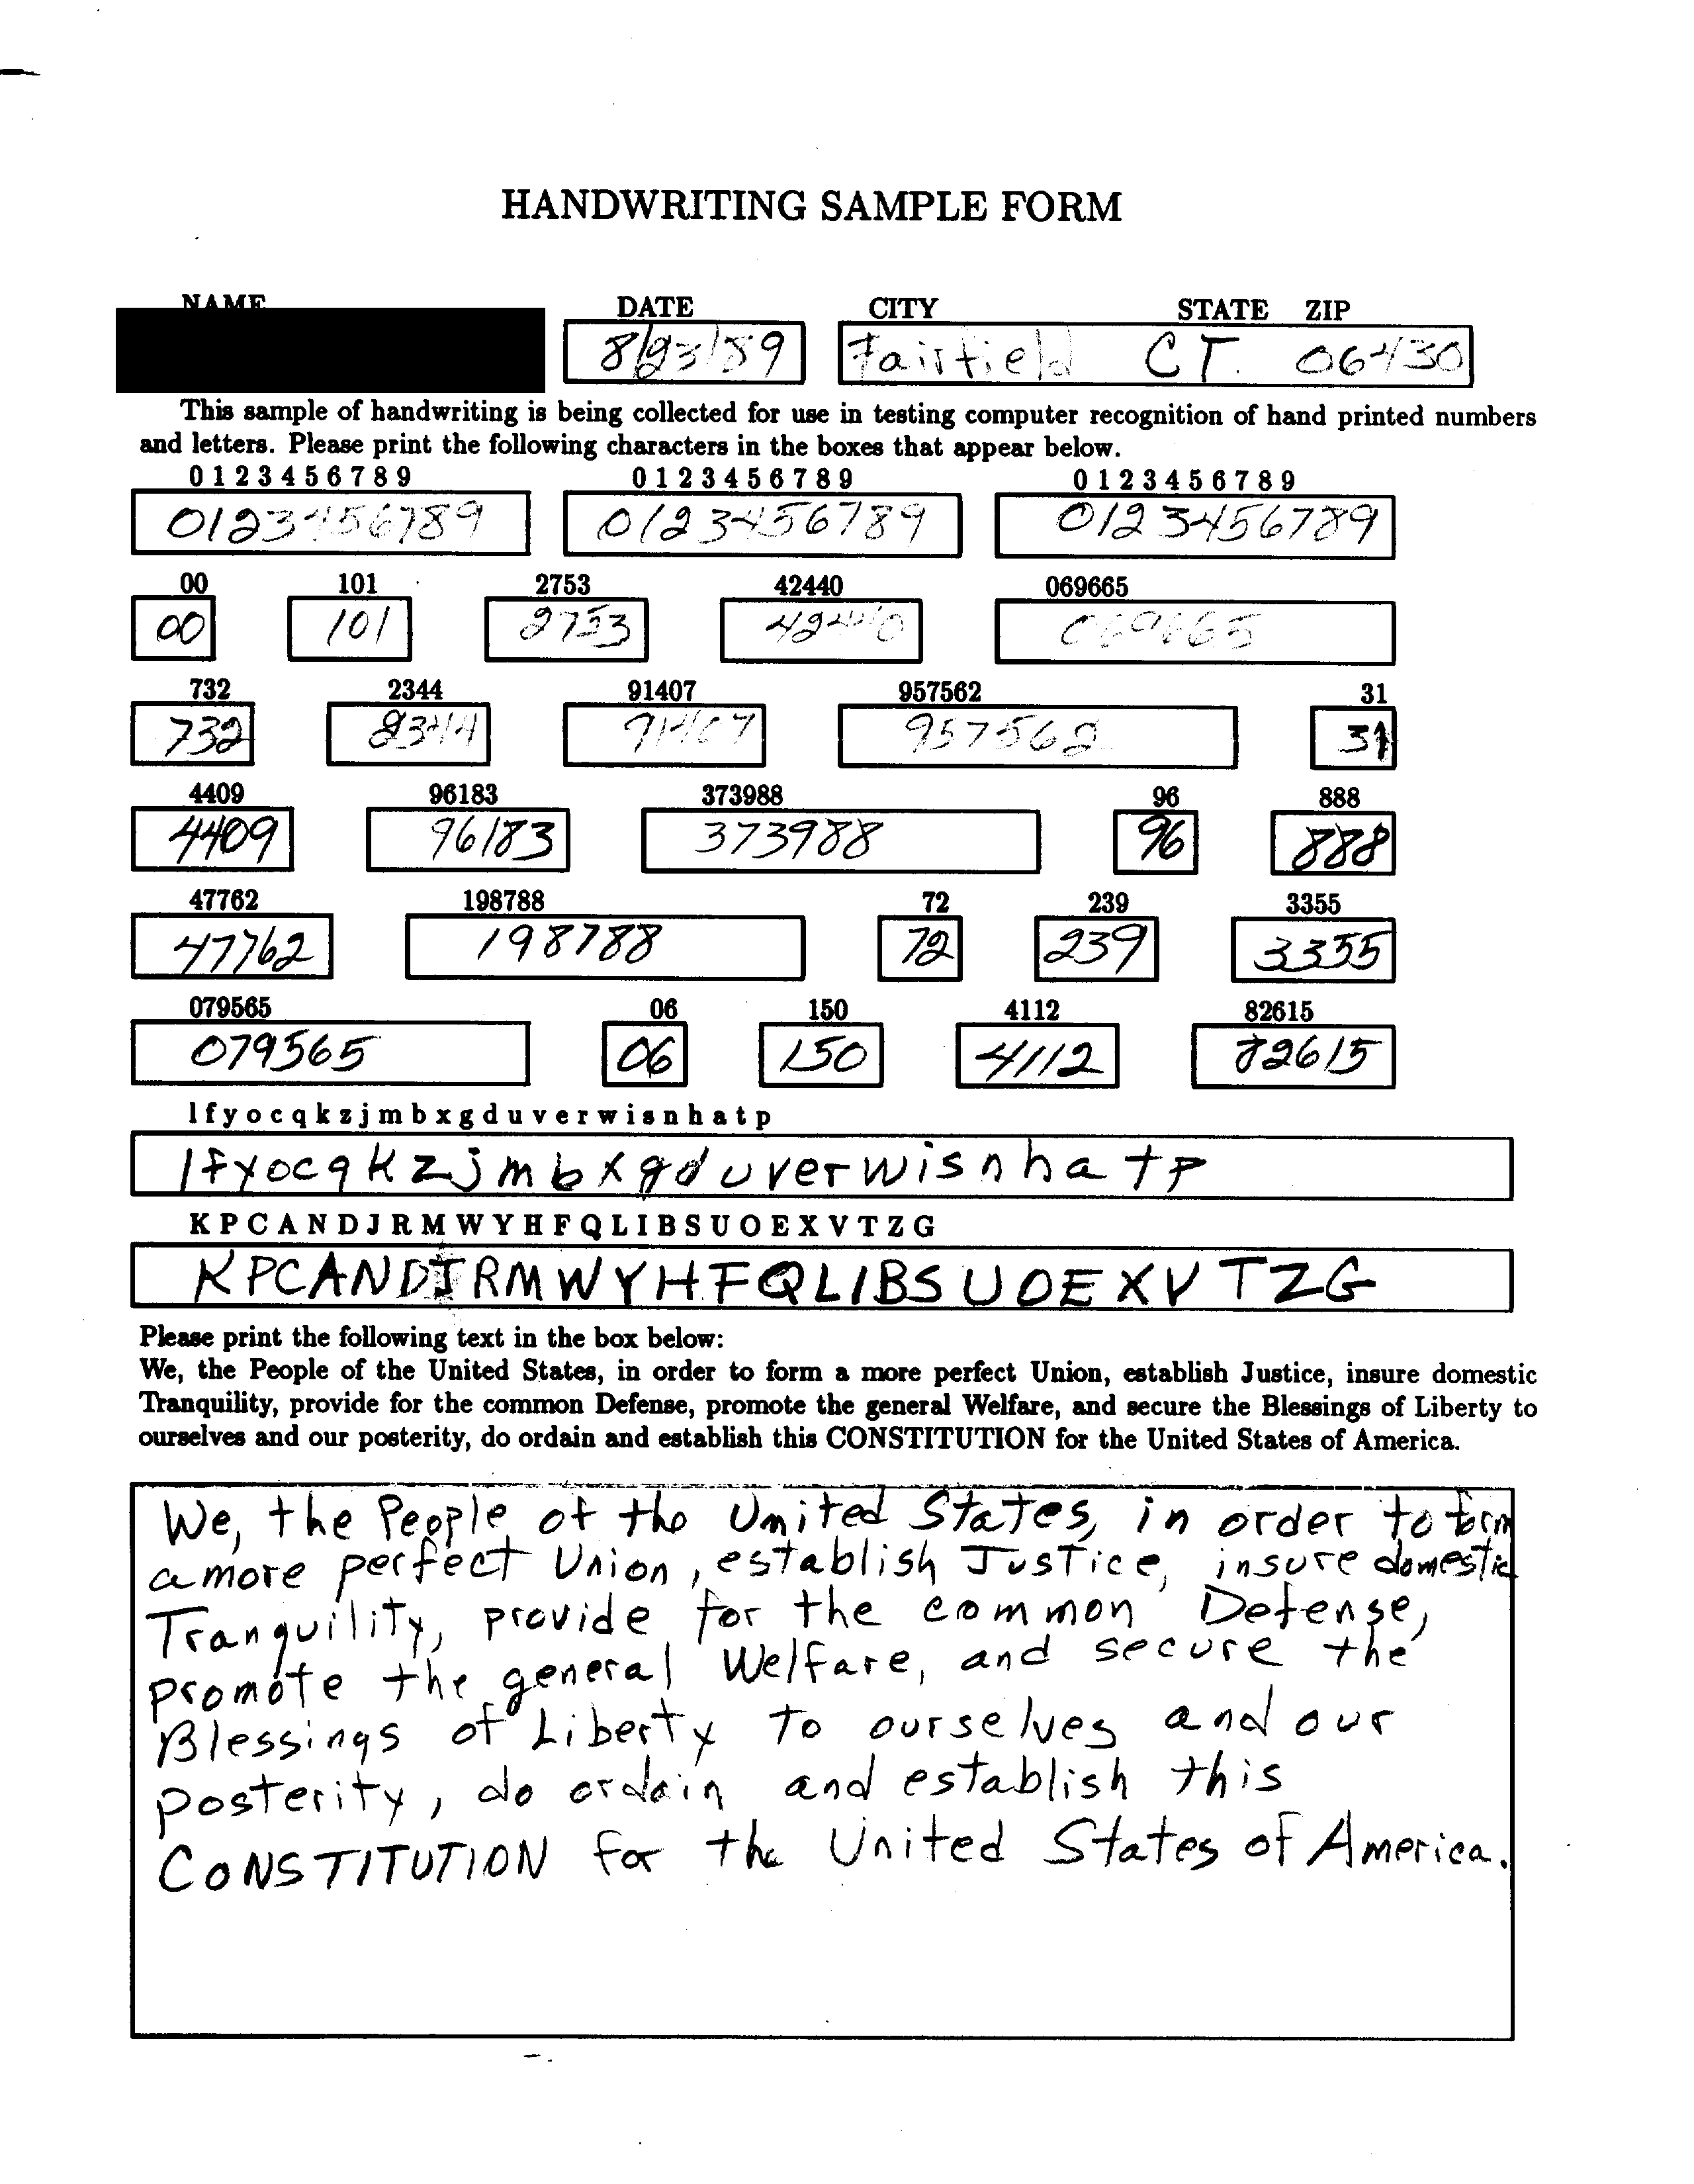 HANDWRITING SAMPLE FORM
NAME DATE CITY STATE ZIP
8/23/89 Fairfield CT. 06430
This sample of handwriting is being collected for use in testing computer recognition of hand printed numbers
and letters. Please print the following characters in the boxes that appear below.
0 1 2 3 4 5 6 7 8 9 0 1 2 3 4 5 6 7 8 9 0 1 2 3 4 5 6 7 8 9
0123456789 0123456789 0123456789
00 101 2753 42440 069665
00 101 2753 42440 069665
732 2344 91407 957562 31
732 2344 91407 957562 31
4409 96183 373988 96 888
4409 96183 373988 96 888
47762 198788 72 239 3355
47762 198788 72 239 3355
079565 06 150 4112 82615
079565 06 150 4112 82615
l f y o c q k z j m b x g d u v e r w i s n h a t p
l f y o c q k z j m b x g d u v e r w i s n h a t p
K P C A N D J R M W Y H F Q L I B S U O E X V T Z G
K P C A N D J R M W Y H F Q L I B S U O E X V T Z G
Please print the following text in the box below:
We, the People of the United States, in order to form a more perfect Union, establish Justice, insure domestic
Tranquility, provide for the common Defense, promote the general Welfare, and secure the Blessings of Liberty to
ourselves and our posterity, do ordain and establish this CONSTITUTION for the United States of America.
We, the People of the United States, in order to form
a more perfect Union, establish Justice, insure domestic
Tranquility, provide for the common Defense,
promote the general Welfare, and secure the
Blessings of Liberty to ourselves and our
posterity, do ordain and establish this
CONSTITUTION for the United States of America.